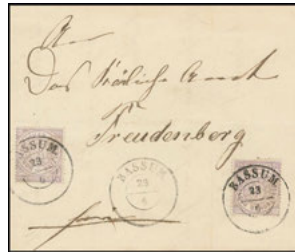 An
Das Königliche Amt
Freudenberg
BASSUM
23
6
BASSUM
23
6
BASSUM
23
6